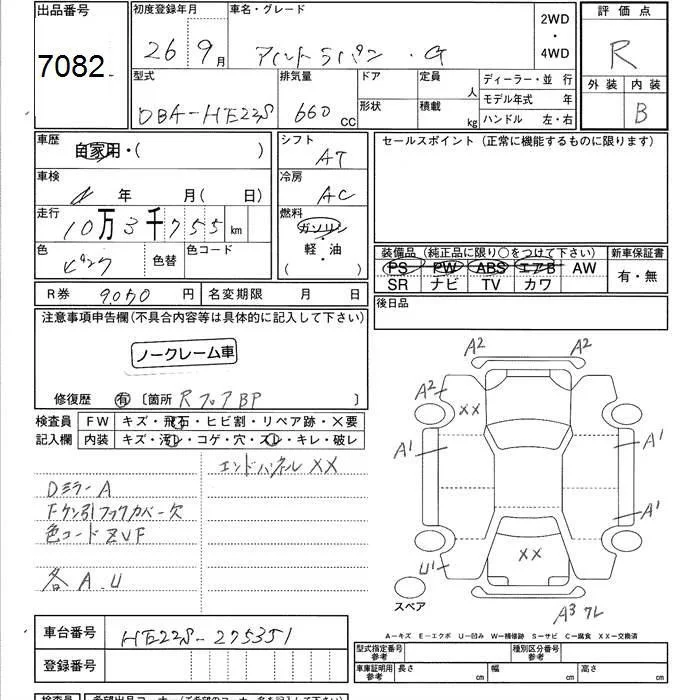 出品番号 初度登録年月 車名・グレード 2WD・4WD 評価点
7082 26年9月 アルトラパン ・G R
型式 排気量 ドア 定員 人 ディーラー・並 行 外装 内装
DBA-HE22S 660cc 形状 積載 kg モデル年式 年 B
ハンドル 左・右
車歴 シフト セールスポイント(正常に機能するものに限ります)
自家用・( ) AT
車検 冷房
年 月(日) AC
走行 燃料
10万3千755km ガソリン
軽・油
( ・ )
色 色替 色コード 装備品(純正品に限り○をつけて下さい) 新車保証書
ピンク PS PW ABS エアB AW 有・無
SR ナビ TV カワ
R券 9050円 名変期限 月 日 後日品
注意事項申告欄(不具合内容等は具体的に記入して下さい)
ノークレーム車
修復歴 有 〔箇所 RフロアBP 〕
検査員 FW キズ・飛石・ヒビ割・リペア跡・×要
記入欄 内装 キズ・汚レ・コゲ・穴・スレ・キレ・破レ
エンドパネルXX
DミラーA
Fケン引フックカバー欠
色コードZVF
各A.U
A2 A2
A2 XX
A1 A1
A1
XX
U1
スペア
A3 ワレ
A-キズ E-エクボ U-凹み W-補修跡 S-サビ C-腐食 XX-交換済
車台番号 HE22S-275351
型式指定番号 参考 種別区分番号 参考
登録番号 車庫証明用 参考 長さ cm 幅 cm 高さ cm
検査員 希望出品コーナー(ご希望のコーナー名を記入下さい)